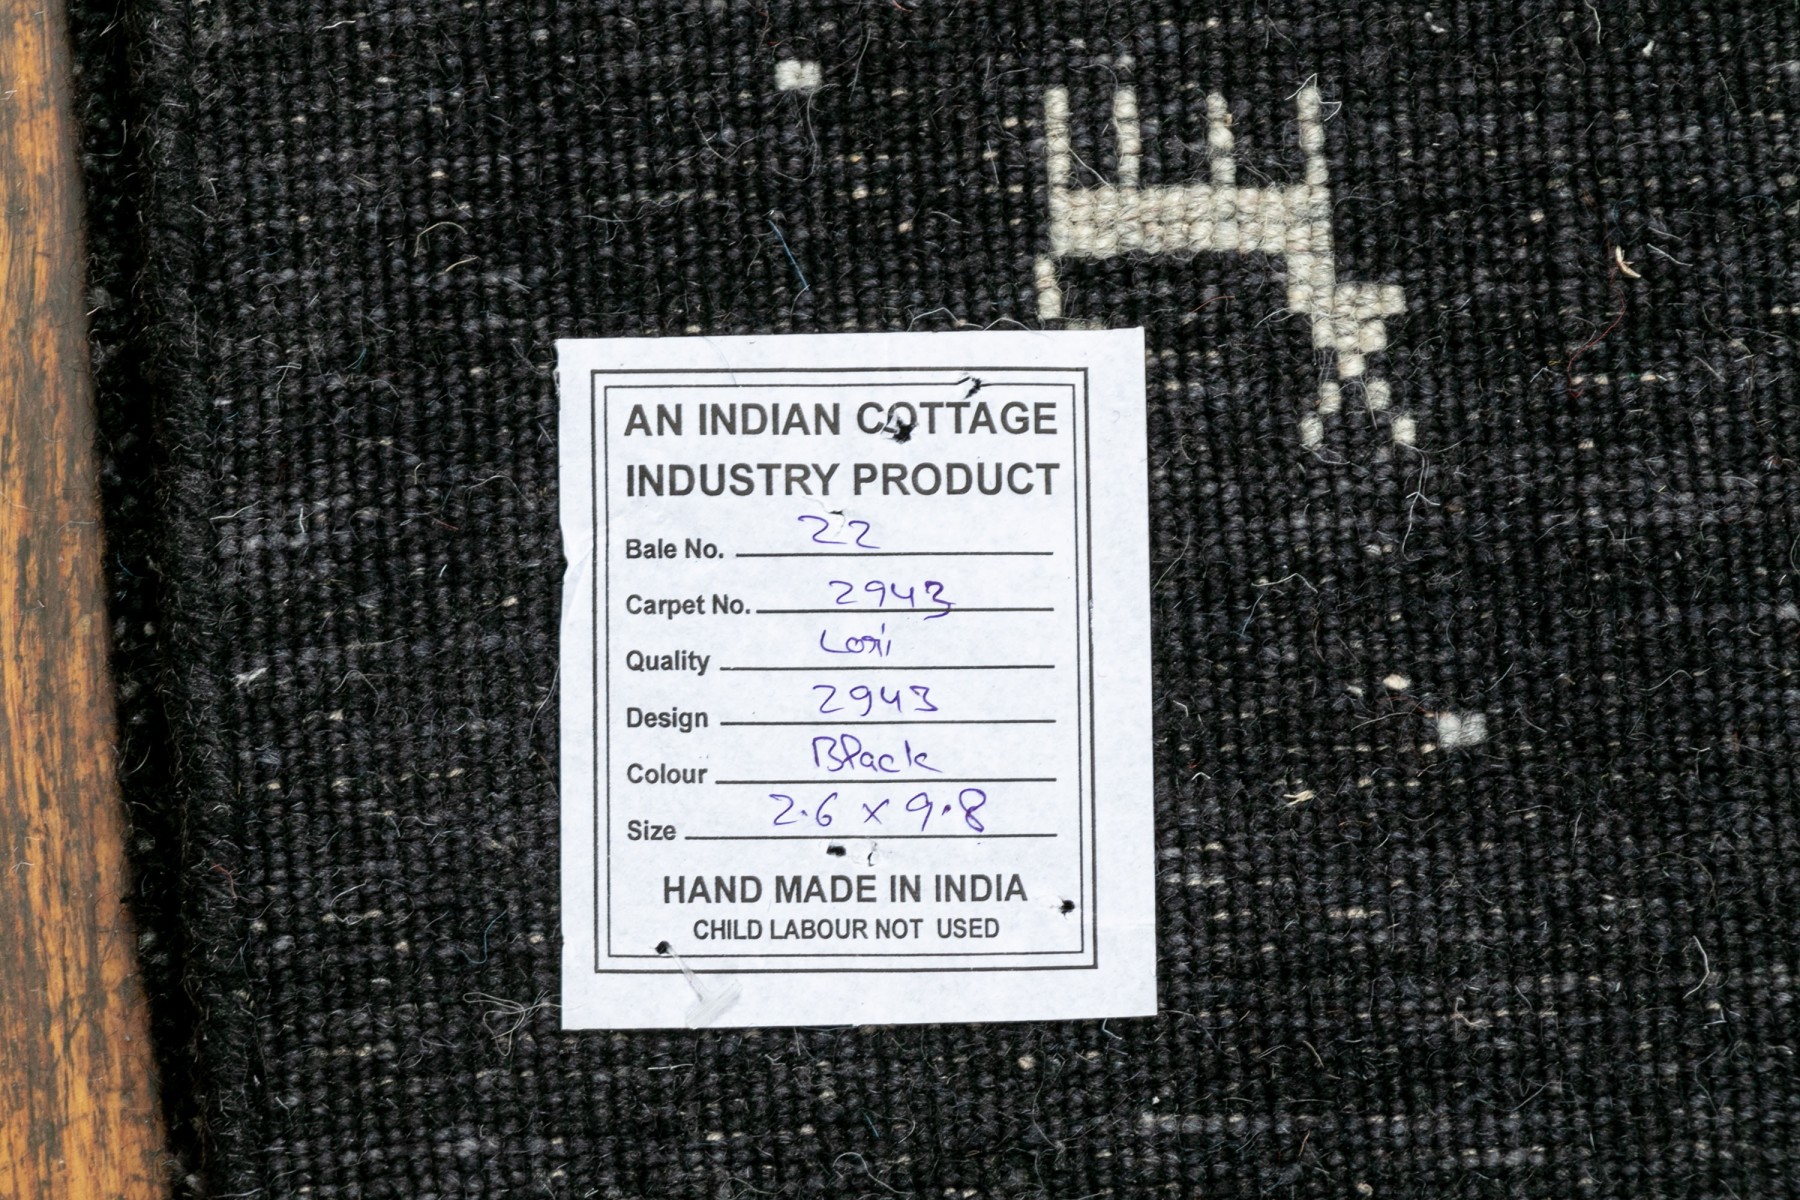 AN INDIAN COTTAGE
INDUSTRY PRODUCT
Bale No. 22
Carpet No. 2943
Quality Lori
Design 2943
Colour Black
Size 2.6 x 9.8
HAND MADE IN INDIA
CHILD LABOUR NOT USED